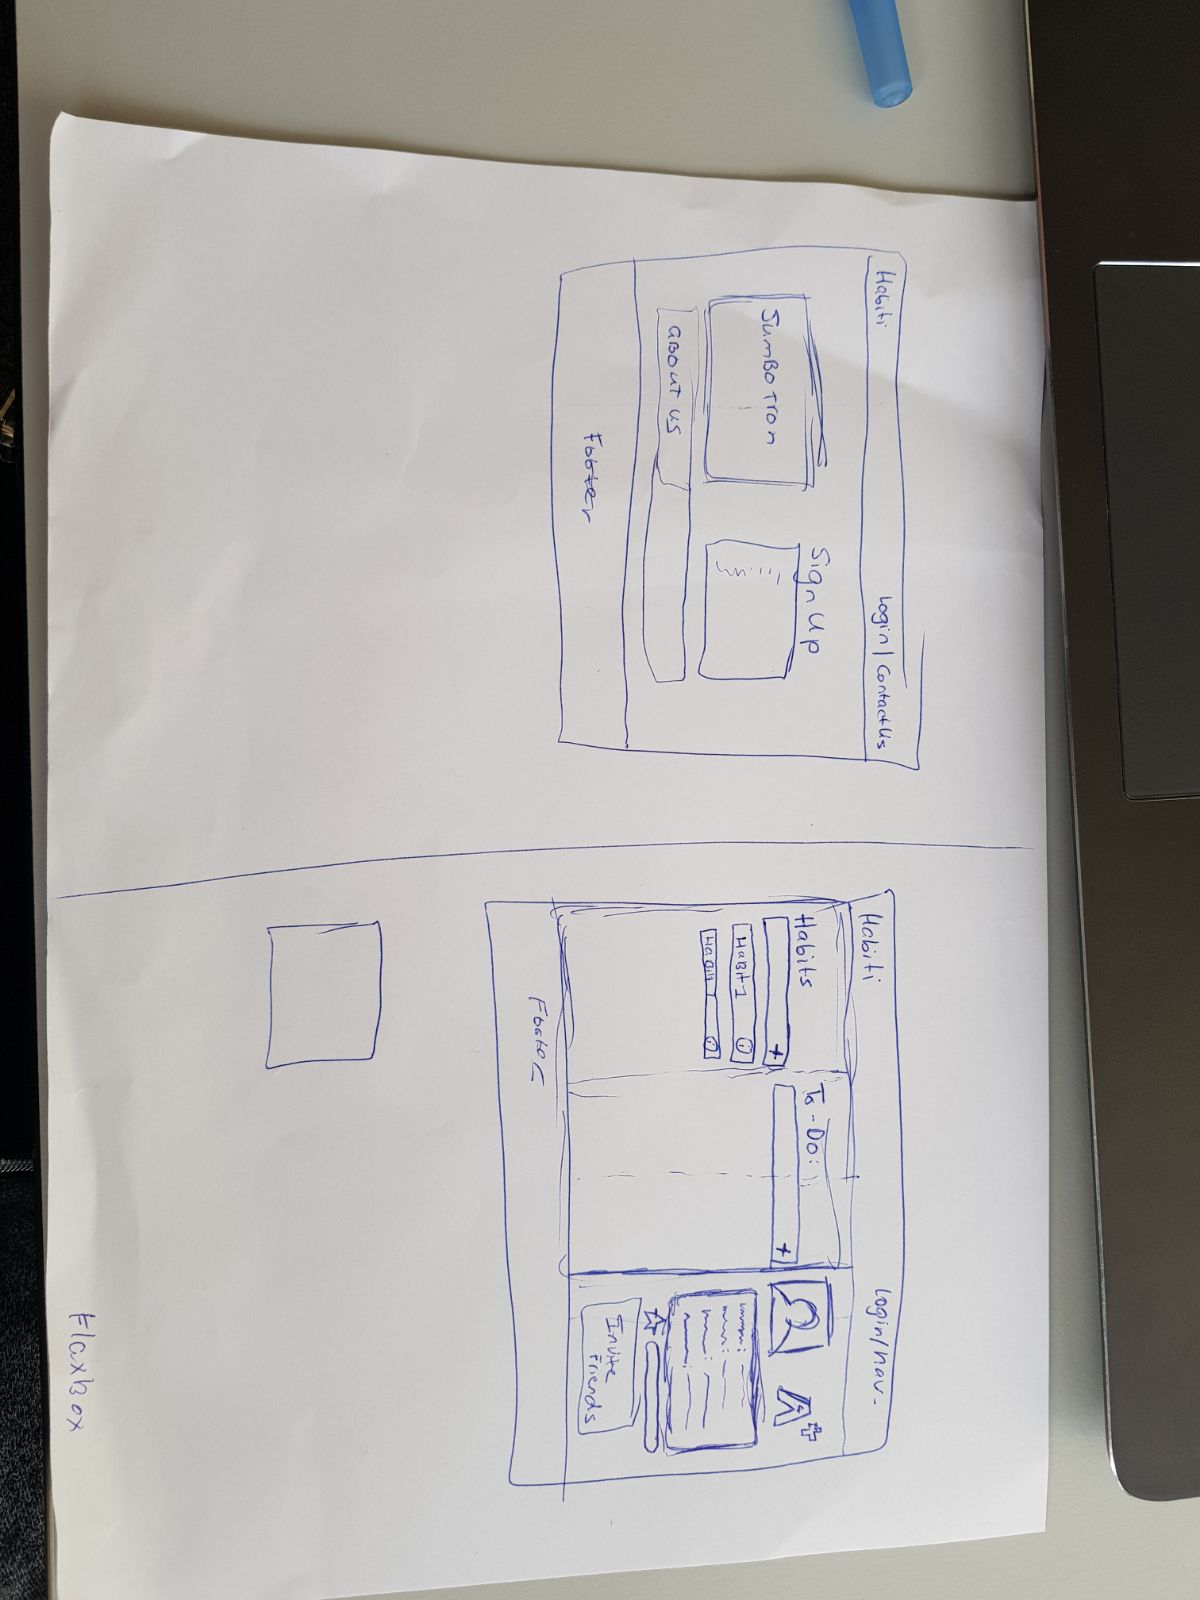 Habiti
Login/Contact Us
JumBoTron
Sign Up
ABOUT US
Footer
Habiti
Login/Nav-
Habits
+
HABIT 1
To-Do:
+
A+
Invite
Friends
Footer
Flaxbox